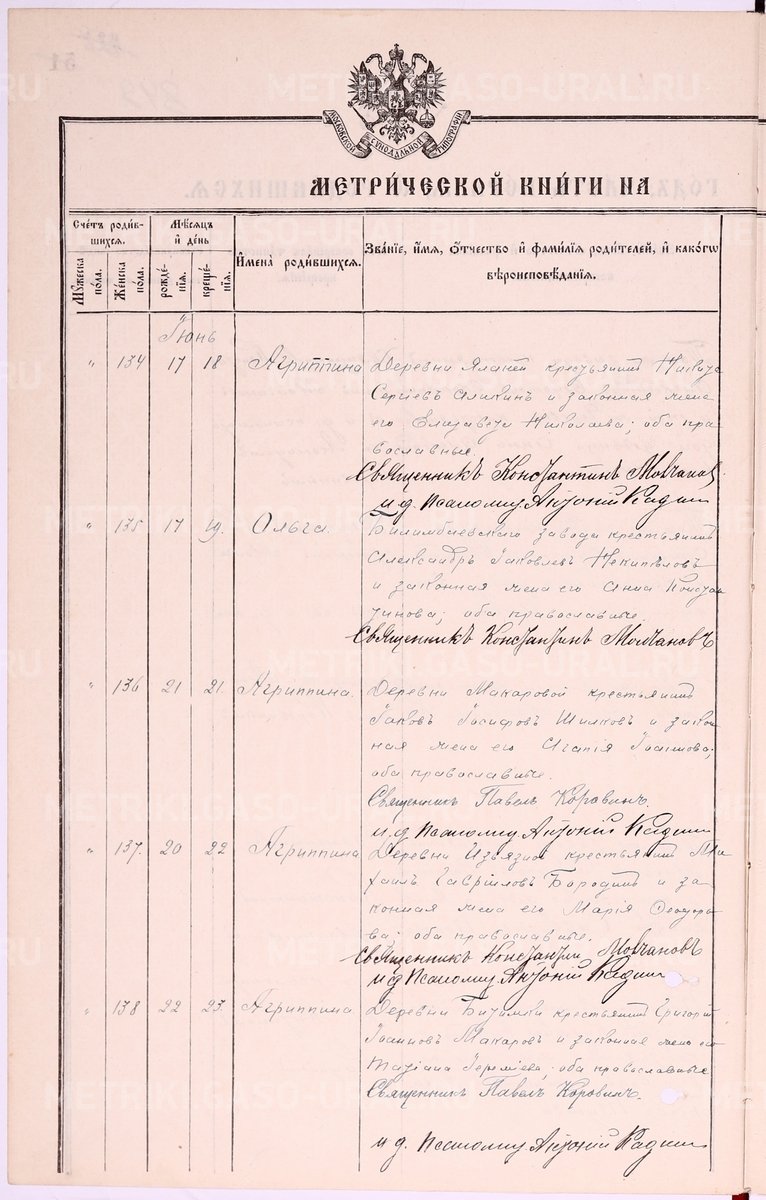 МОСКОВСКОЙ СУНОДАЛЬНОЙ ТИПОГРАФІИ
МЕТРИЧЕСКОЙ КНИГИ НА
Счетъ родив-
шихся.
Мѣсяцъ
и день
Имена родившихся.
Званіе, имя, отчество и фамилія родителей, и какогω
вѣроисповѣданія.
Мꙋжеска
пола.
Женска
пола.
рожде-
нія.
креще-
нія.
Іюнь
" 134 17 18 Агриппина Деревни крестьянинъ Никита
Сергіевъ Аликинъ и законная жена
его Елизавета Николаева; оба пра-
вославные.
Священникъ Константинъ Молчановъ
и.д. Псаломщ. Антоній
" 135 17 19. Ольга. Билимбаевскаго завода крестьянинъ
Александръ Іаковлевъ Некипѣловъ
и законная жена его Анна Констан-
тинова; оба православные.
Священникъ Константинъ Молчановъ
" 136 21 21. Агриппина. Деревни Макаровой крестьянинъ
Іаковъ Іосифовъ Шилковъ и закон-
ная жена его Агапія Іоаннова;
оба православные.
Священникъ Павелъ Коровинъ.
и.д. Псаломщ. Антоній
" 137. 20 22 Агриппина Деревни крестьянинъ Ми-
хаилъ Гавріиловъ Бородинъ и за-
конная жена его Марія Ѳеодоро-
ва; оба православные.
Священникъ Константинъ Молчановъ
и.д. Псаломщ. Антоній
" 138 22 23. Агриппина. Деревни Битимки крестьянинъ Григорій
Іоанновъ Макаровъ и законная жена его
Татіана Іереміева; оба православные
Священникъ Павелъ Коровинъ.
и.д. Псаломщ. Антоній